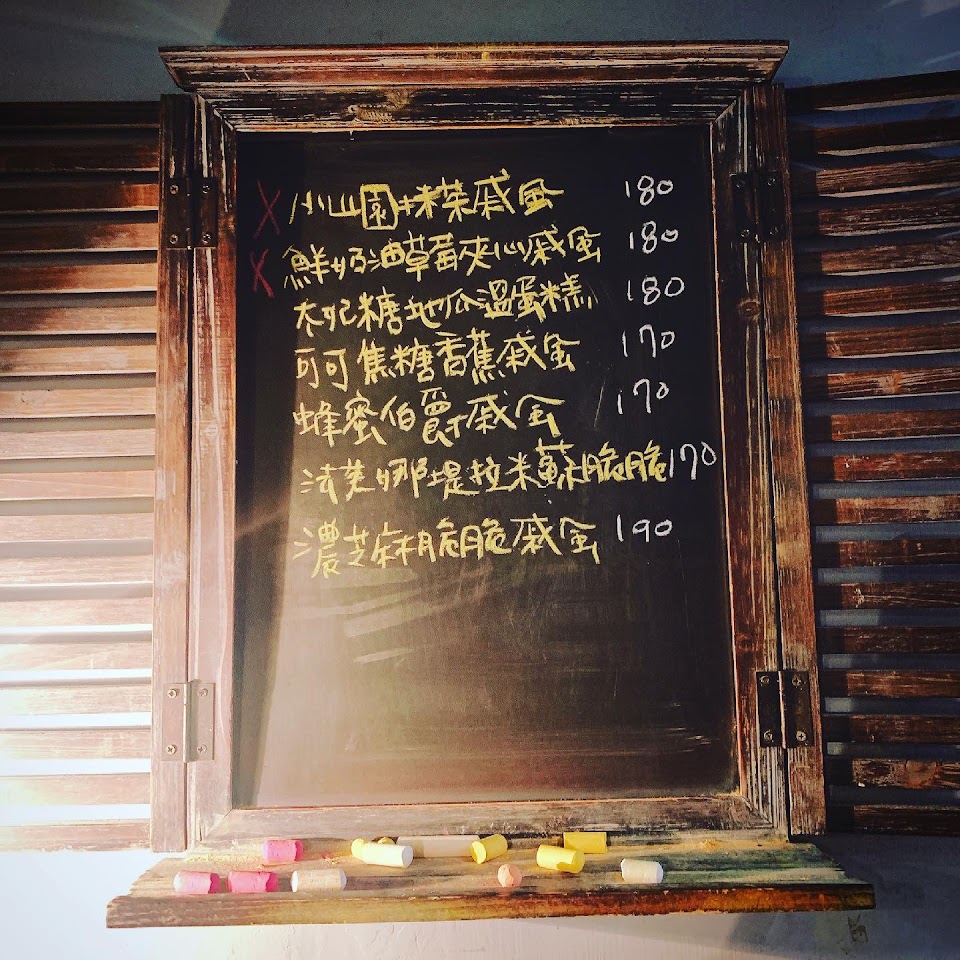 X 小山園抹茶戚風 180
X 鮮奶油草莓夾心戚風 180
太妃糖地瓜溫蛋糕 180
可可焦糖香蕉戚風 170
蜂蜜伯爵戚風 170
法芙娜堤拉米蘇脆脆 170
濃芝麻脆脆戚風 190